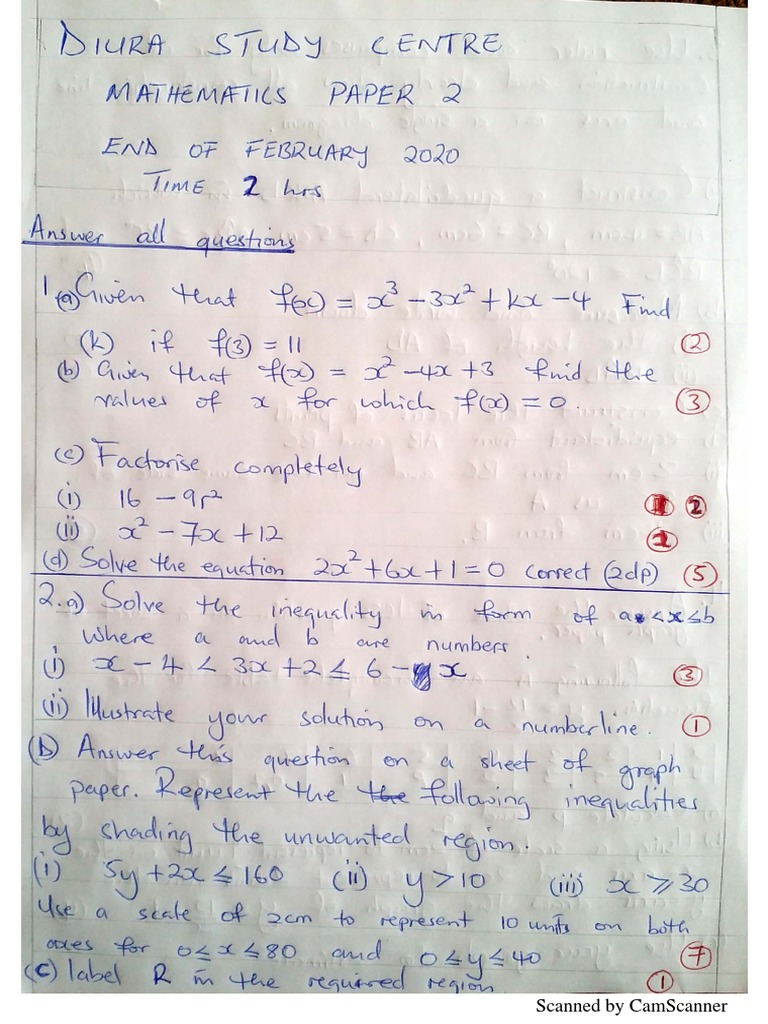 DIURA STUDY CENTRE
MATHEMATICS PAPER 2
END OF FEBRUARY 2020
TIME 2 hrs
Answer all questions
1 (a) Given that f(x) = x³ - 3x² + kx - 4 Find
(k) if f(3) = 11 (2)
(b) Given that f(x) = x² - 4x + 3 find the
values of x for which f(x) = 0. (3)
(c) Factorise completely
(i) 16 - 9r² (2)
(ii) x² - 7x + 12
(d) Solve the equation 2x² + 6x + 1 = 0 correct (2dp) (5)
2. a) Solve the inequality in form of a < x ≤ b
where a and b are numbers.
(i) x - 4 < 3x + 2 ≤ 6 - x (3)
(ii) Illustrate your solution on a numberline. (1)
(b) Answer this question on a sheet of graph
paper. Represent the the following inequalities
by shading the unwanted region.
(i) 5y + 2x ≤ 160 (ii) y > 10 (iii) x ≥ 30
Use a scale of 2cm to represent 10 units on both
axes for 0 ≤ x ≤ 80 and 0 ≤ y ≤ 40 (7)
(c) label R in the required region (1)
Scanned by CamScanner